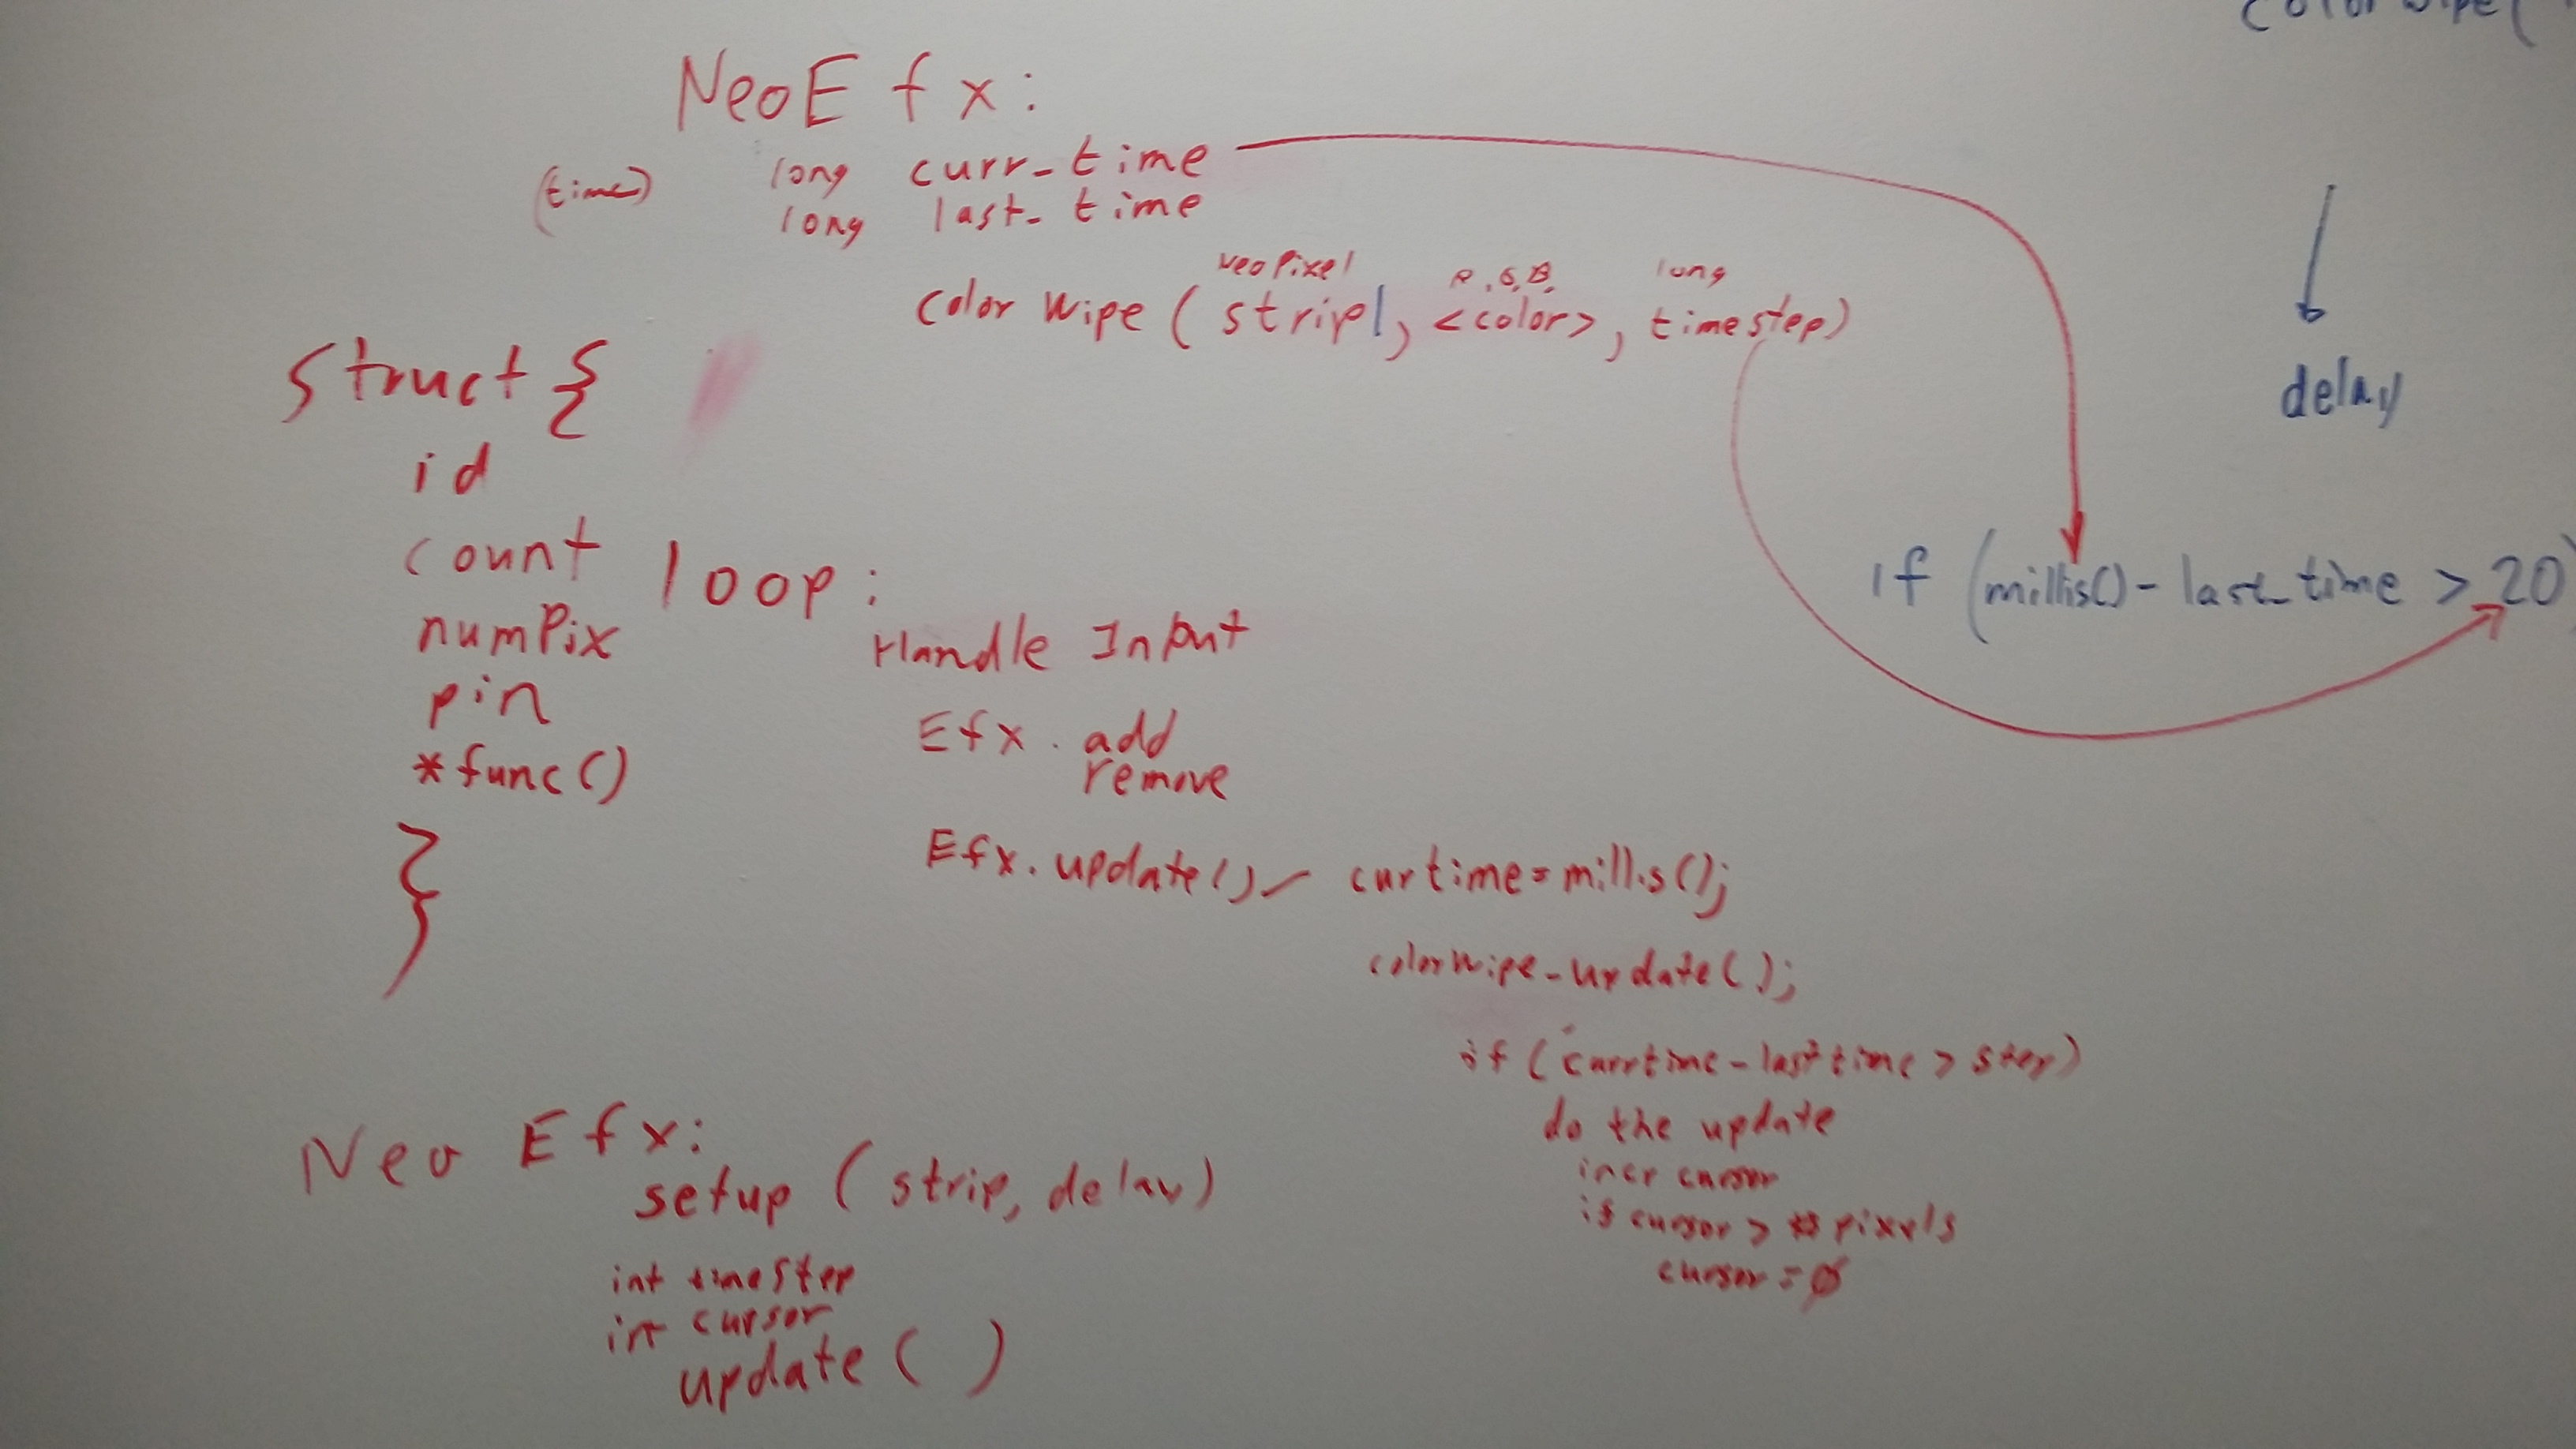 colorwipe(
NeoEfx:
(time) long curr_time
long last_time
NeoPixel R,G,B, long
Color Wipe (strip1, <color>, timestep)
delay
struct {
id
count
numPix
pin
*func()
}
if (millis() - last_time > 20)
loop:
Handle Input
Efx. add
remove
Efx.update() curtime = millis();
colorWipe_update();
if (currtime - lasttime > step)
do the update
incr cursor
if cursor > # pixels
cursor = 0
Neo Efx:
setup (strip, delay)
int timestep
int cursor
update ( )